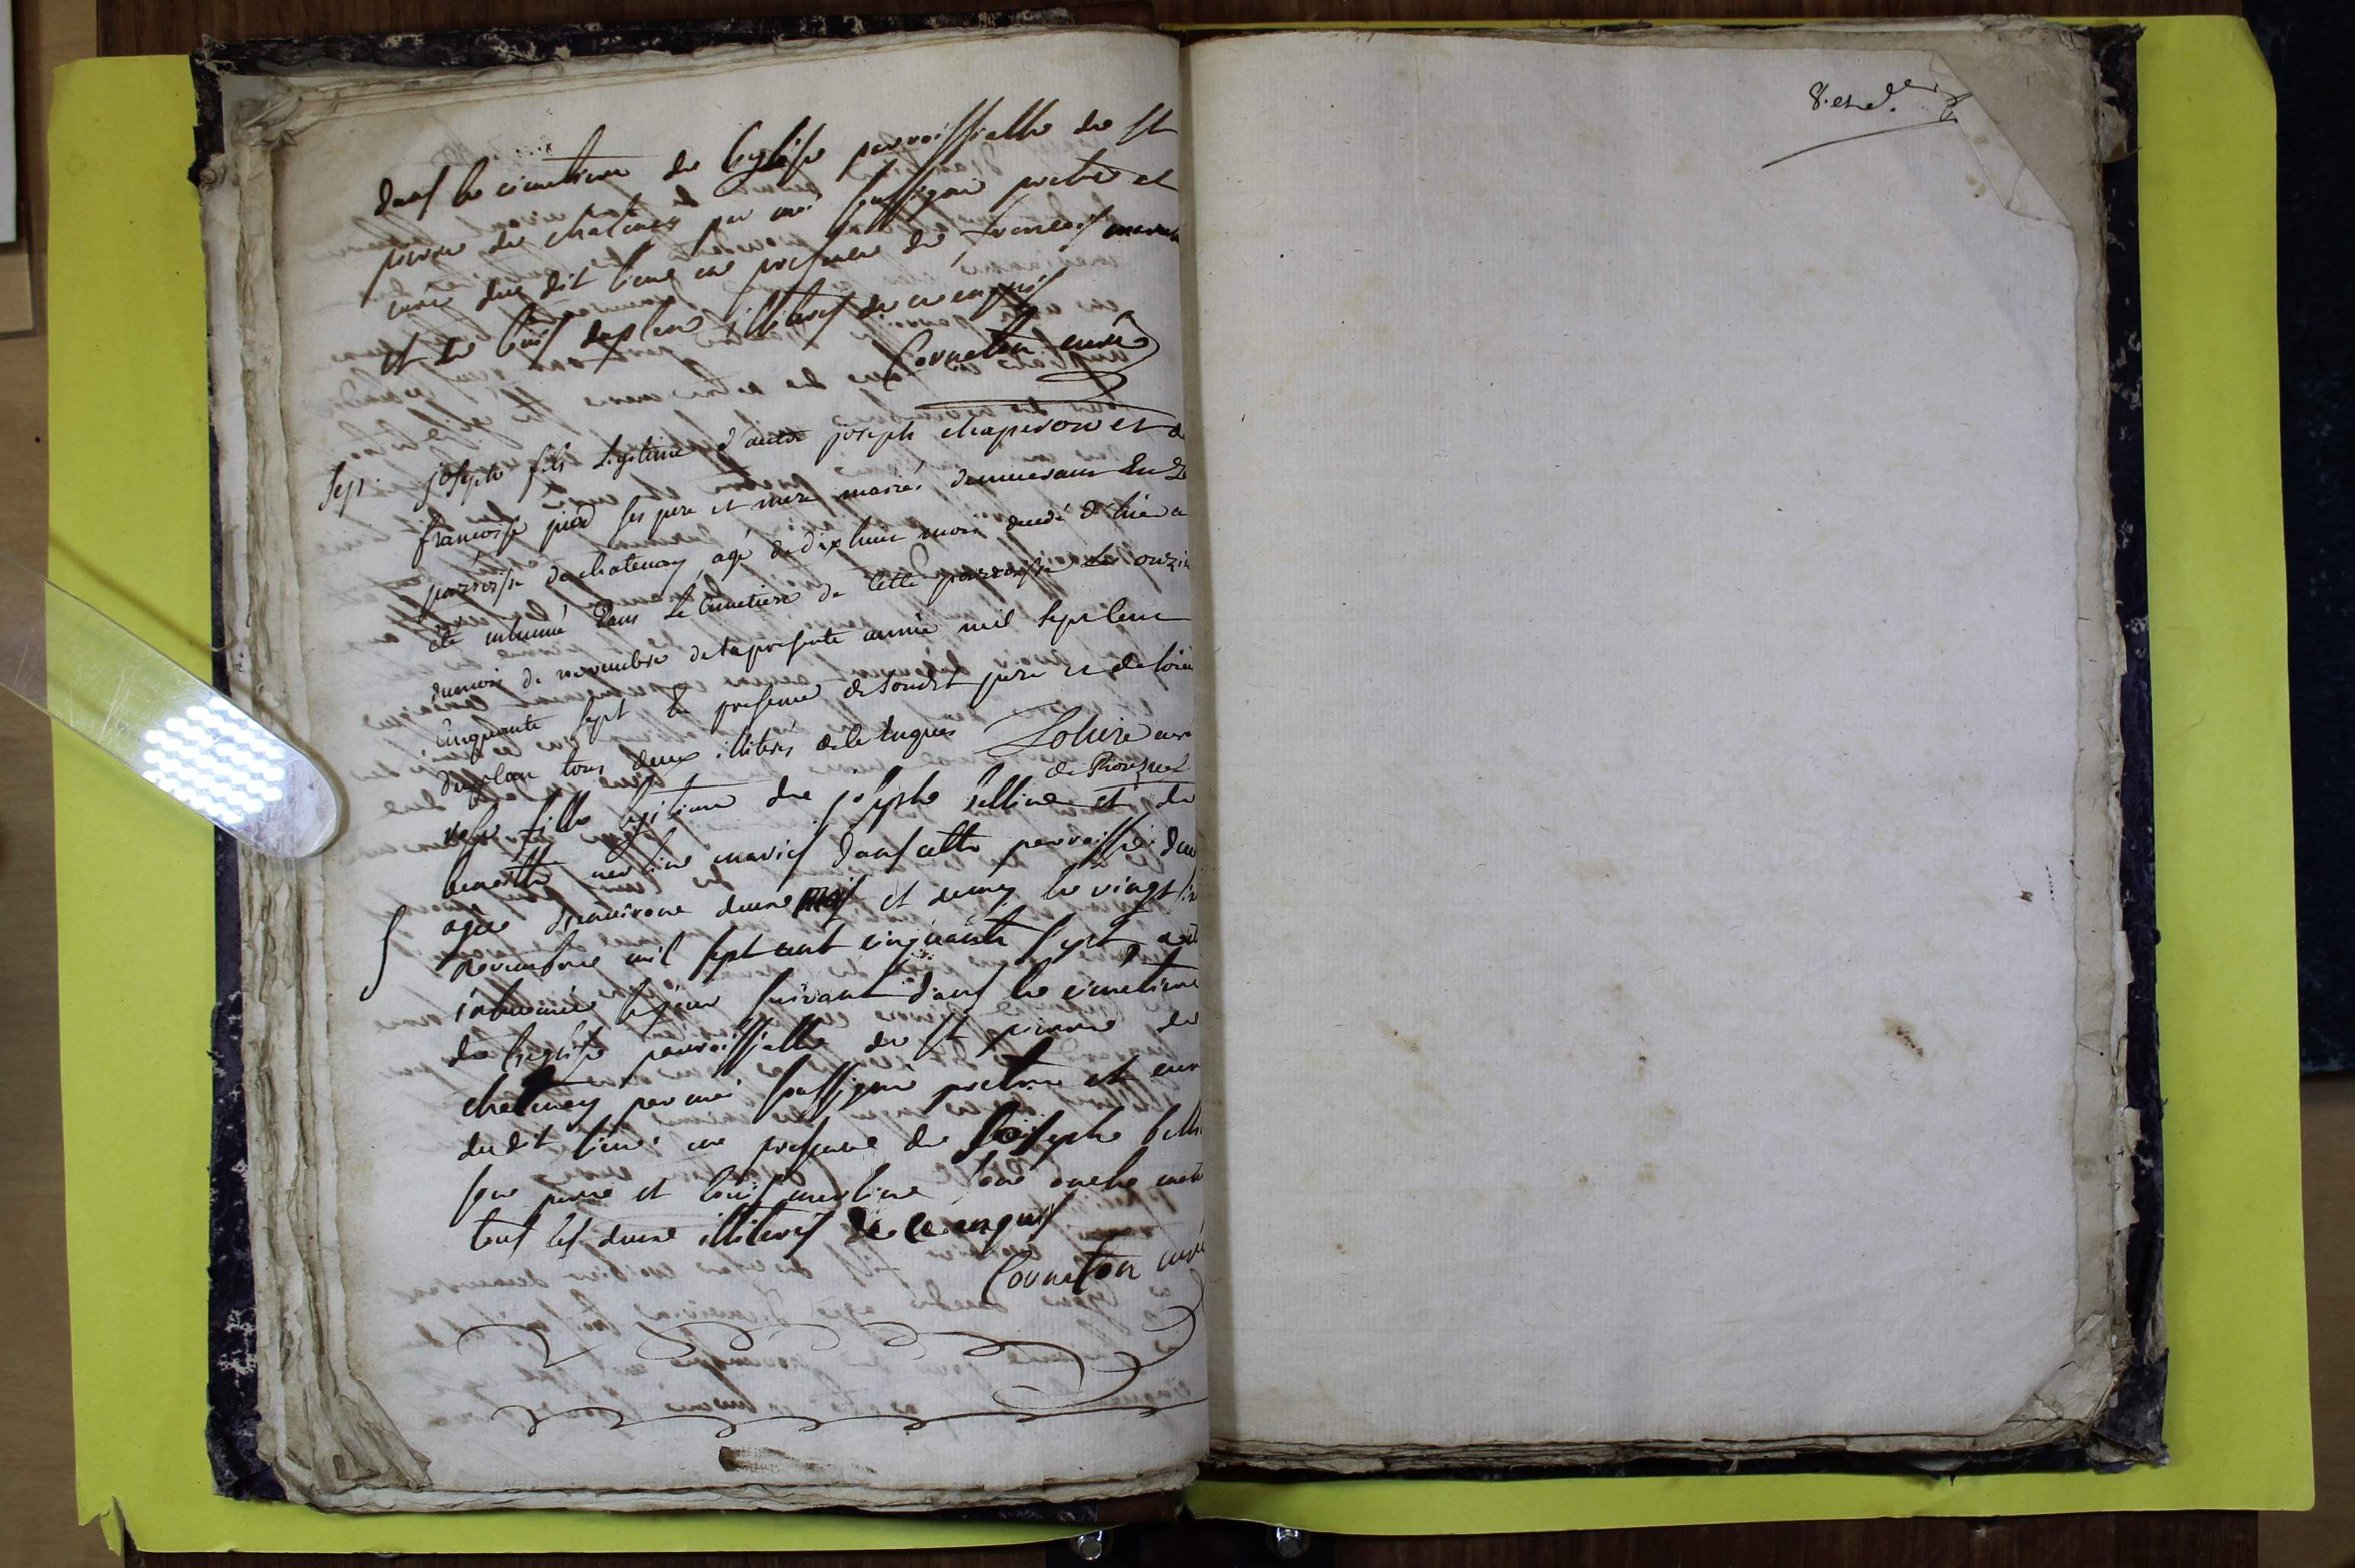 dans le cimetiere de leglise parroissialle de st
pierre de chatenay par moi soussigné pretre et
curé du dit lieu en presence de francois
et de louis duplan illiteres de ce enquis
Corneton curé
sep. joseph fils legitime d'autre joseph chaperon et de
francoise piod ses pere et mere mariés demeurans en la
parroisse de chatenay agé de dix huit mois decedé d'hier a
été inhumé dans le cimetiere de cette parroisse le onzie
du mois de novembre de la presente année mil sept cent
cinquante sept en presence de soudit pere et de loüis
duplan tous deux illiteres de ce enquis Loliere curé
de
fille legitime de joseph et de
benoitte mariés dans cette parroisse
agée d'environ deux mois et demy le vingt
novembre mil sept cent cinquante sept, a eté
inhumée le jour suivant dans le cimetiere
de leglise parroissialle de st pierre de
chatenay par moi soussigné pretre et curé
dudit lieu en presence de joseph
son pere et louis son oncle
tous les deux illiteres de ce enquis
Corneton curé
8. et d.er